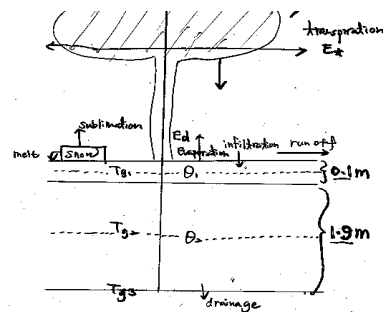 transpiration
E*
sublimation
Ed
Evaporation
infiltration
run off
melt
Snow
Tg1
θ1
0.1m
Tg2
θ2
1.9m
Tg3
drainage